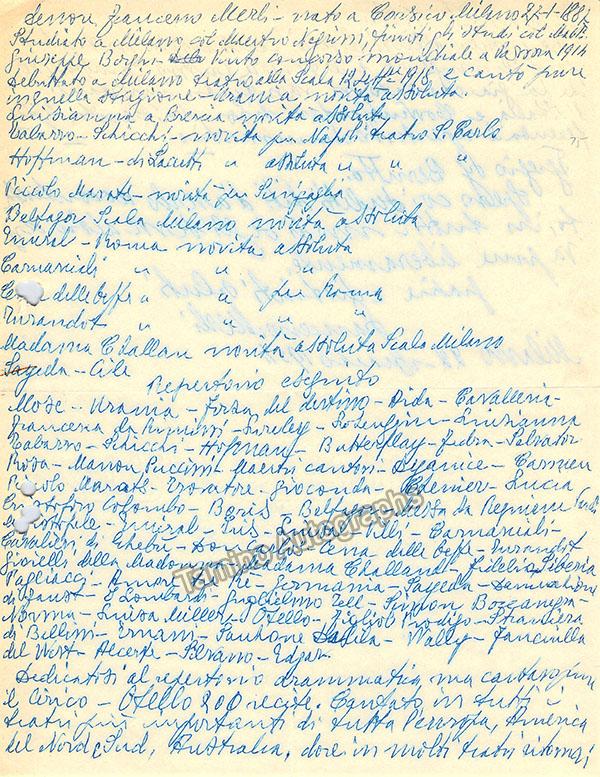 Tenore Francesco Merli - nato a Corsico Milano 27-1-1887
Studiato a Milano col Maestro Negrini, finiti gli studi col Maest.
Giuseppe Borghi vinto concorso mondiale a Parma 1914
Debuttato a Milano teatro alla Scala 1918, e cantò pure
nella stagione - Urania novità assoluta
Giulianna, a Brescia novità assoluta
Tabarro - Schicchi - novità per Napoli teatro S. Carlo
Hoffman - di Lacetti " assoluta " " "
Piccolo Marat - novità per Sinigaglia
Belfagor Scala Milano novità assoluta
Emiral - Roma novità assoluta
Carnasciali " " "
Cena delle beffe " " per Roma
Turandot " " " "
Madama Challan novità assoluta Scala Milano
Sayeda - Cile
Repertorio eseguito
Mosè - Urania - Forza del destino - Aida - Cavalleria -
Francesca da Rimini - Loreley - Lohengrin - Giulianna
Tabarro - Schicchi - Hofman - Butterflay - Fedra - Salvator
Rosa - Manon Puccini - Maestri cantori - Dejanice - Carmen
Piccolo Marat - Trovatore - Gioconda - Chenier - Lucia
Cristoforo Colombo - Boris - Belfagor - Messa da Requiem Verdi
Mefistofele - Emiral - - Carnasciali -
Cavalieri di Ekebù - Don - Cena delle beffe - Turandot
Gioielli della Madonna - Madama Challand - Fidelio - Siberia
Pagliacci - Amore Tre Re - Germania - Sayeda - Dannazione
di Faust - I Lombardi - Guglielmo Tell - Simon Boccanegra -
Norma - Luisa Miller - Otello - Figliol Prodigo - Straniera
di Bellini - Ernani - Sansone Dalila - Wally - Fanciulla
del West - Alceste - Silvano - Edgar.
Dedicatosi al repertorio drammatico ma cantò pure
il lirico - Otello 200 recite. Cantato in tutti i
teatri più importanti di tutta l'Europa, America
del Nord e Sud, Australia, dove in molti teatri ritornai
Tamino Autographs